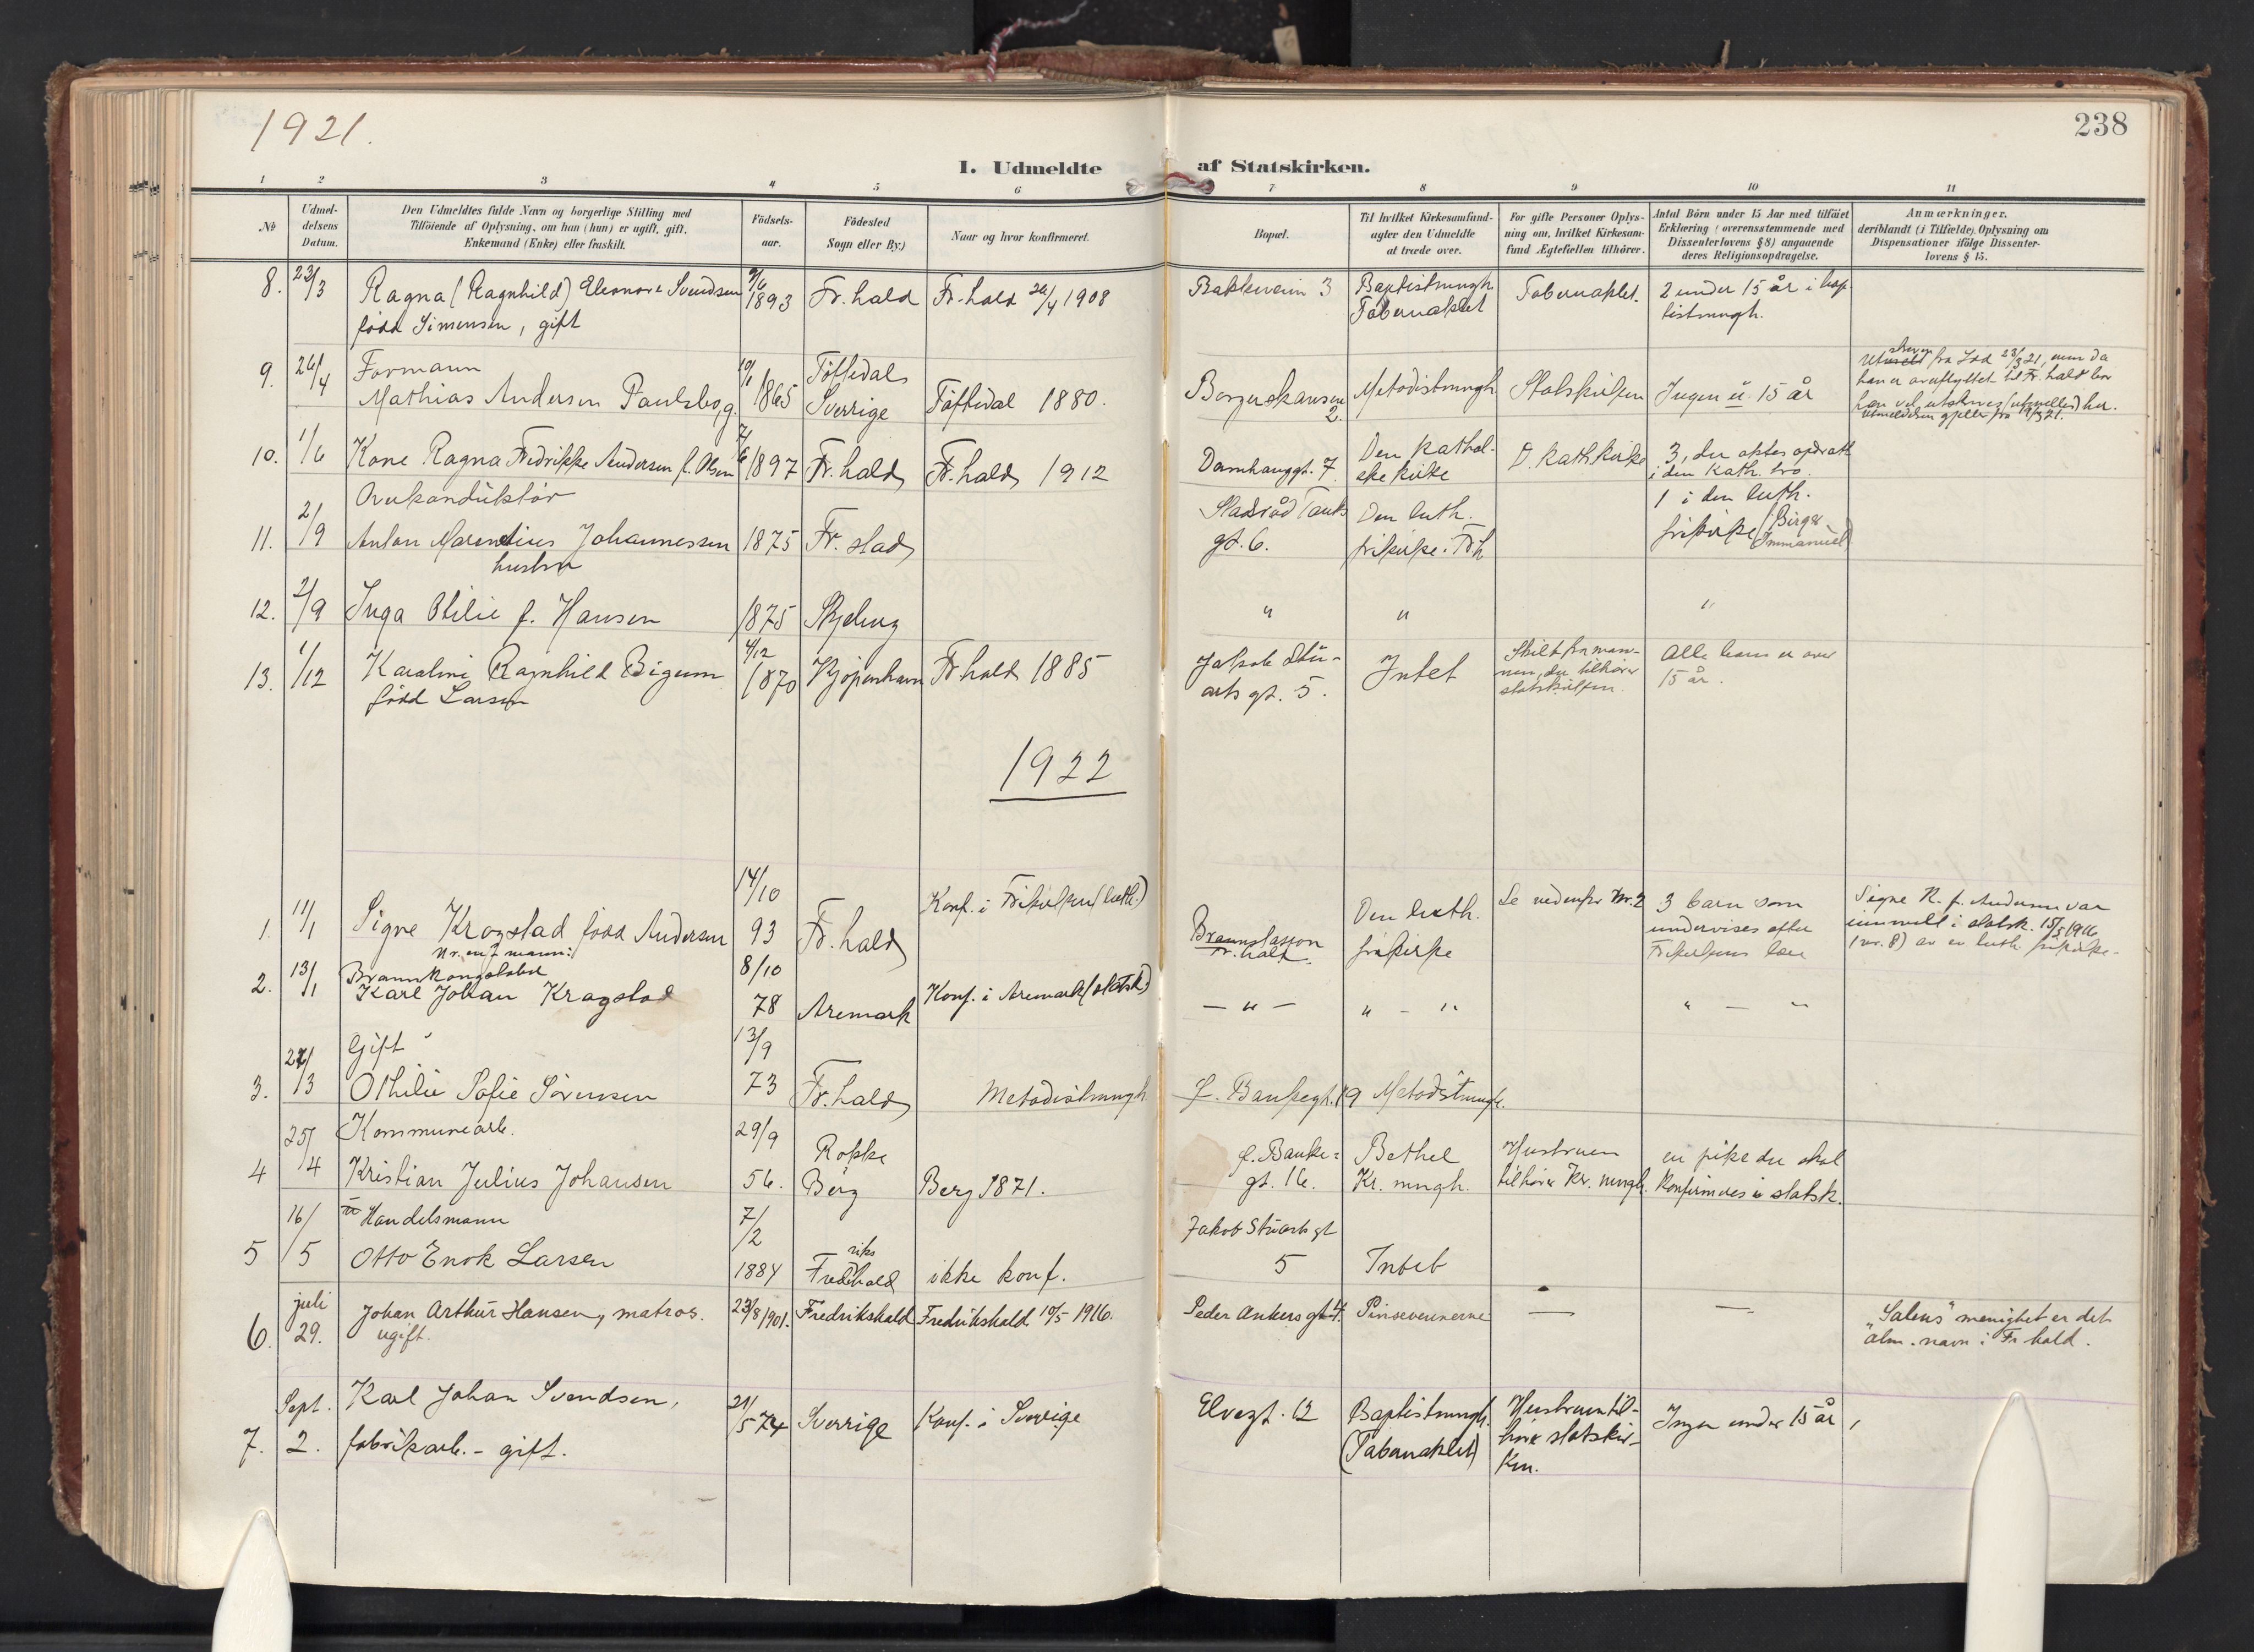 1921.
238
I. Udmeldte af Statskirken.
1 2 3 4 5 6 7 8 9 10 11
No
Udmeldelsens Datum.
Den Udmeldtes fulde Navn og borgerlige Stilling med
Tilföiende af Oplysning, om han (hun) er ugift, gift,
Enkemand (Enke) eller fraskilt.
Födsels-
aar.
Födested
Sogn eller By.)
Naar og hvor konfirmeret.
Bopæl.
Til hvilket Kirkesamfund
agter den Udmeldte
at træde over.
For gifte Personer Oplys-
ning om, hvilket Kirkesam-
fund Ægtefællen tilhörer.
Antal Börn under 15 Aar med tilföiet
Erklæring (overensstemmende med
Dissenterlovens § 8) angaaende
deres Religionsopdragelse.
Anmærkninger,
deriblandt (i Tilfælde) Oplysning om
Dispensationer ifölge Dissenter-
lovens § 15.
8. 23/3 Ragna (Ragnhild) Eleonore Svendsen
född Simensen, gift
9/6 1893 Fr.hald Fr.hald 26/4 1908
Bakkeveien 3 Baptistmengh. Tabernaklet
Tabernaklet.
2 under 15 år i bap-
tistmengh.
9. 26/4 Formann
Mathias Andersen Paulsbo, g.
10/1 1865 Töftedal, Sverrige
Töftedal 1880.
Borgerskansen 2.
Metodistmengh.
Statskirken
Ingen u. 15 år
fra Idd 23/3 21, men da
han er avflyttet til Fr.hald bør
han vel utskrives (utmeldes) her.
Utmeldelsen gjelder fra 19/3 21.
10. 1/6 Kone Ragna Fredrikke Andersen f. Olsen
7/6 1897 Fr.hald Fr.hald 1912
Damhauggt. 7. Den kathol-
ske kirke
D. kath kirke
3, der aktes opdratt
i den kath. tro.
11. 2/9
Anton Marentius Johannessen
1875 Fr.stad
Stadsråd Tanks
gt. 6.
Den luth.
frikirke i Frh
1 i den luth.
frikirke (Birger
Immanuel)
hustru
12. 2/9 Inga Otilie f. Hansen
1875 Skjeberg
" " "
13. 1/12 Karoline Ragnhild Bigum
född Larsen
4/12 1870 Kjöpenhavn Fr hald 1885
Jakob Stu-
arts gt. 5.
Intet
Skilt fra man-
nen, der tilhörer
statskirken.
Alle barn er over
15 år.
1922
1. 11/1 Signe Kragstad född Andersen
14/10 93 Fr.hald
Konf. i Frikirken (luth.)
Brannstasjon
Fr.hald.
Den luth.
frikirke
Se nedenfor Nr. 2
3 barn som
undervises efter
Frikirkens lære
Signe K. f. Andersen var
innmeldt i statsk. 15/5 1916
(nr. 8) av en luth frikirke.
2. 13/1 Nr. en's mann:
Brannkonstabel
Karl Johan Kragstad
8/10 78 Aremark
Konf. i Aremark (statsk.)
— " — " - " " — "
3. 27/3 Gift
Othilie Sofie Sörensen
13/9 73 Fr.hald
Metodistmengh
f. Bankegt. 19 Metodistmengh.
4 25/4 Kommunearb.
Kristian Julius Johansen
29/9 56. Rokke
Berg
Berg 1871.
f. Banke-
gt. 16.
Bethel
Kr. mengh.
Hustruen
tilhører Kr. mengh.
en pike der skal
konfirmeres i statsk.
5 16/5 Handelsmann
Otto Enok Larsen
7/2 1884 Fredrikshald
ikke konf.
Jakob Stuarts gt
5
Intet
6. juli 29. Johan Arthur Hansen, matros.
ugift.
23/8 1901. Fredrikshald Fredrikshald 10/5 1916.
Peder Ankers gt 4. Pinsevennerne
— —
"Salens" menighet er det
alm. navn i Fr hald.
7. Sept. 2. Karl Johan Svendsen,
fabrikarb. - gift.
21/5 74 Sverrige Konf. i Sverrige
Elvegt. 12
Baptistmengh.
(Tabernaklet)
Hustruen til-
hører statskir-
ken.
Ingen under 15 år,